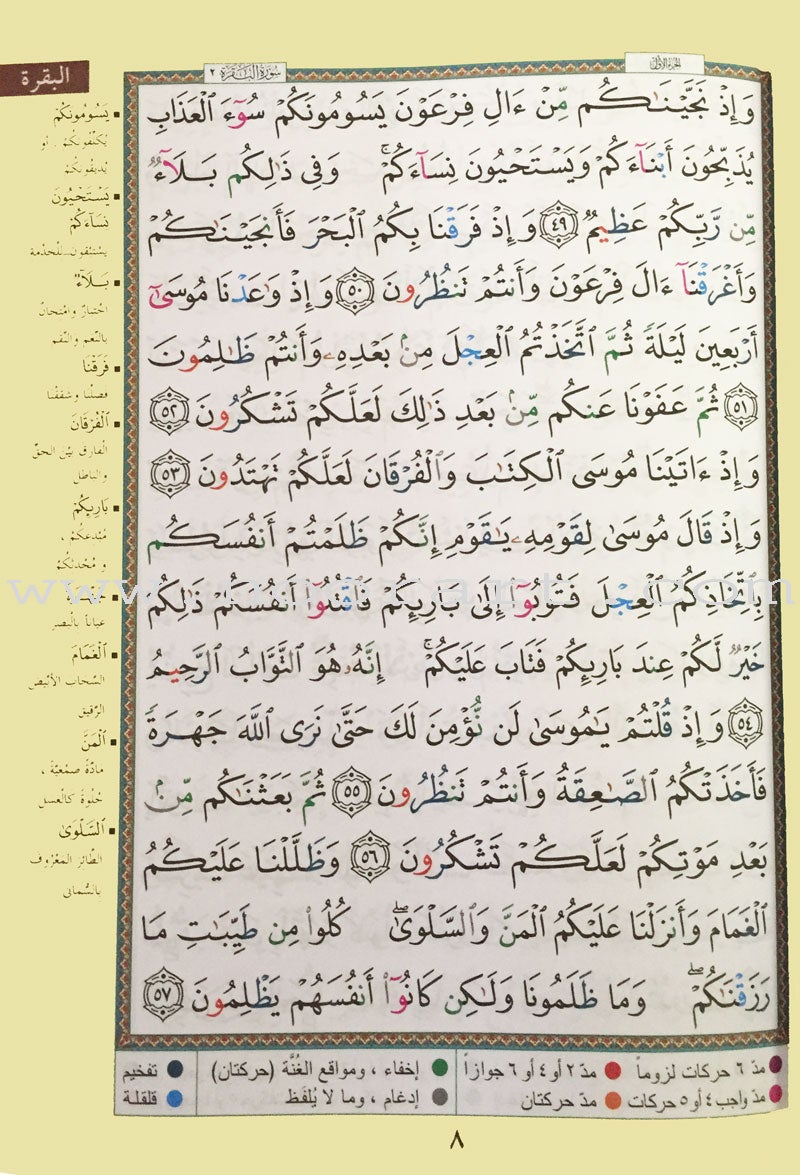 الجزء الأول
سورة البقرة ٢
البقرة
وَإِذْ نَجَّيْنَٰكُم مِّنْ ءَالِ فِرْعَوْنَ يَسُومُونَكُمْ سُوٓءَ ٱلْعَذَابِ
يُذَبِّحُونَ أَبْنَآءَكُمْ وَيَسْتَحْيُونَ نِسَآءَكُمْ ۚ وَفِى ذَٰلِكُم بَلَآءٌ
مِّن رَّبِّكُمْ عَظِيمٌ ٤٩ وَإِذْ فَرَقْنَا بِكُمُ ٱلْبَحْرَ فَأَنجَيْنَٰكُمْ
وَأَغْرَقْنَآ ءَالَ فِرْعَوْنَ وَأَنتُمْ تَنظُرُونَ ٥٠ وَإِذْ وَٰعَدْنَا مُوسَىٰٓ
أَرْبَعِينَ لَيْلَةً ثُمَّ ٱتَّخَذْتُمُ ٱلْعِجْلَ مِنۢ بَعْدِهِۦ وَأَنتُمْ ظَٰلِمُونَ
٥١ ثُمَّ عَفَوْنَا عَنكُم مِّنۢ بَعْدِ ذَٰلِكَ لَعَلَّكُمْ تَشْكُرُونَ ٥٢
وَإِذْ ءَاتَيْنَا مُوسَى ٱلْكِتَٰبَ وَٱلْفُرْقَانَ لَعَلَّكُمْ تَهْتَدُونَ ٥٣
وَإِذْ قَالَ مُوسَىٰ لِقَوْمِهِۦ يَٰقَوْمِ إِنَّكُمْ ظَلَمْتُمْ أَنفُسَكُم
بِٱتِّخَاذِكُمُ ٱلْعِجْلَ فَتُوبُوٓا۟ إِلَىٰ بَارِئِكُمْ فَٱقْتُلُوٓا۟ أَنفُسَكُمْ ذَٰلِكُمْ
خَيْرٌ لَّكُمْ عِندَ بَارِئِكُمْ فَتَابَ عَلَيْكُمْ ۚ إِنَّهُۥ هُوَ ٱلتَّوَّابُ ٱلرَّحِيمُ
٥٤ وَإِذْ قُلْتُمْ يَٰمُوسَىٰ لَن نُّؤْمِنَ لَكَ حَتَّىٰ نَرَى ٱللَّهَ جَهْرَةً
فَأَخَذَتْكُمُ ٱلصَّٰعِقَةُ وَأَنتُمْ تَنظُرُونَ ٥٥ ثُمَّ بَعَثْنَٰكُم مِّنۢ
بَعْدِ مَوْتِكُمْ لَعَلَّكُمْ تَشْكُرُونَ ٥٦ وَظَلَّلْنَا عَلَيْكُمُ
ٱلْغَمَامَ وَأَنزَلْنَا عَلَيْكُمُ ٱلْمَنَّ وَٱلسَّلْوَىٰ ۖ كُلُوا۟ مِن طَيِّبَٰتِ مَا
رَزَقْنَٰكُمْ ۖ وَمَا ظَلَمُونَا وَلَٰكِن كَانُوٓا۟ أَنفُسَهُمْ يَظْلِمُونَ ٥٧
يَسُومُونَكُمْ
يُكَلِّفُونَكُمْ . أو
يُذيقُونَكُمْ
يَسْتَحْيُونَ
نِسَآءَكُمْ
يستبقون للخدمة
بَلَآءٌ
اختبارٌ وامتحانٌ
بالنِّعم والنِّقم
فَرَقْنَا
فصلْنا وشققْنا
ٱلْفُرْقَانَ
الفارق بيْن الحقِّ
والباطل
بَارِئِكُمْ
مُبْدعكُمْ ،
و مُحْدثكُمْ
عياناً بالبصرِ
ٱلْغَمَامَ
السَّحاب الأبْيض
الرَّقيق
ٱلْمَنَّ
مادّة صمْغيَّة ،
حُلْوة كالعسل
ٱلسَّلْوَىٰ
الطَّائر المَعْرُوف
بالسُّمانى
مدّ ٦ حركات لزوماً مدّ ٢ أو ٤ أو ٦ جوازاً إخفاء ، ومواقع الغُنَّة (حركتان) تفخيم
مدّ واجب ٤ أو ٥ حركات مدّ حركتان إدغام ، وما لا يُلفَظ قلقلة
٨